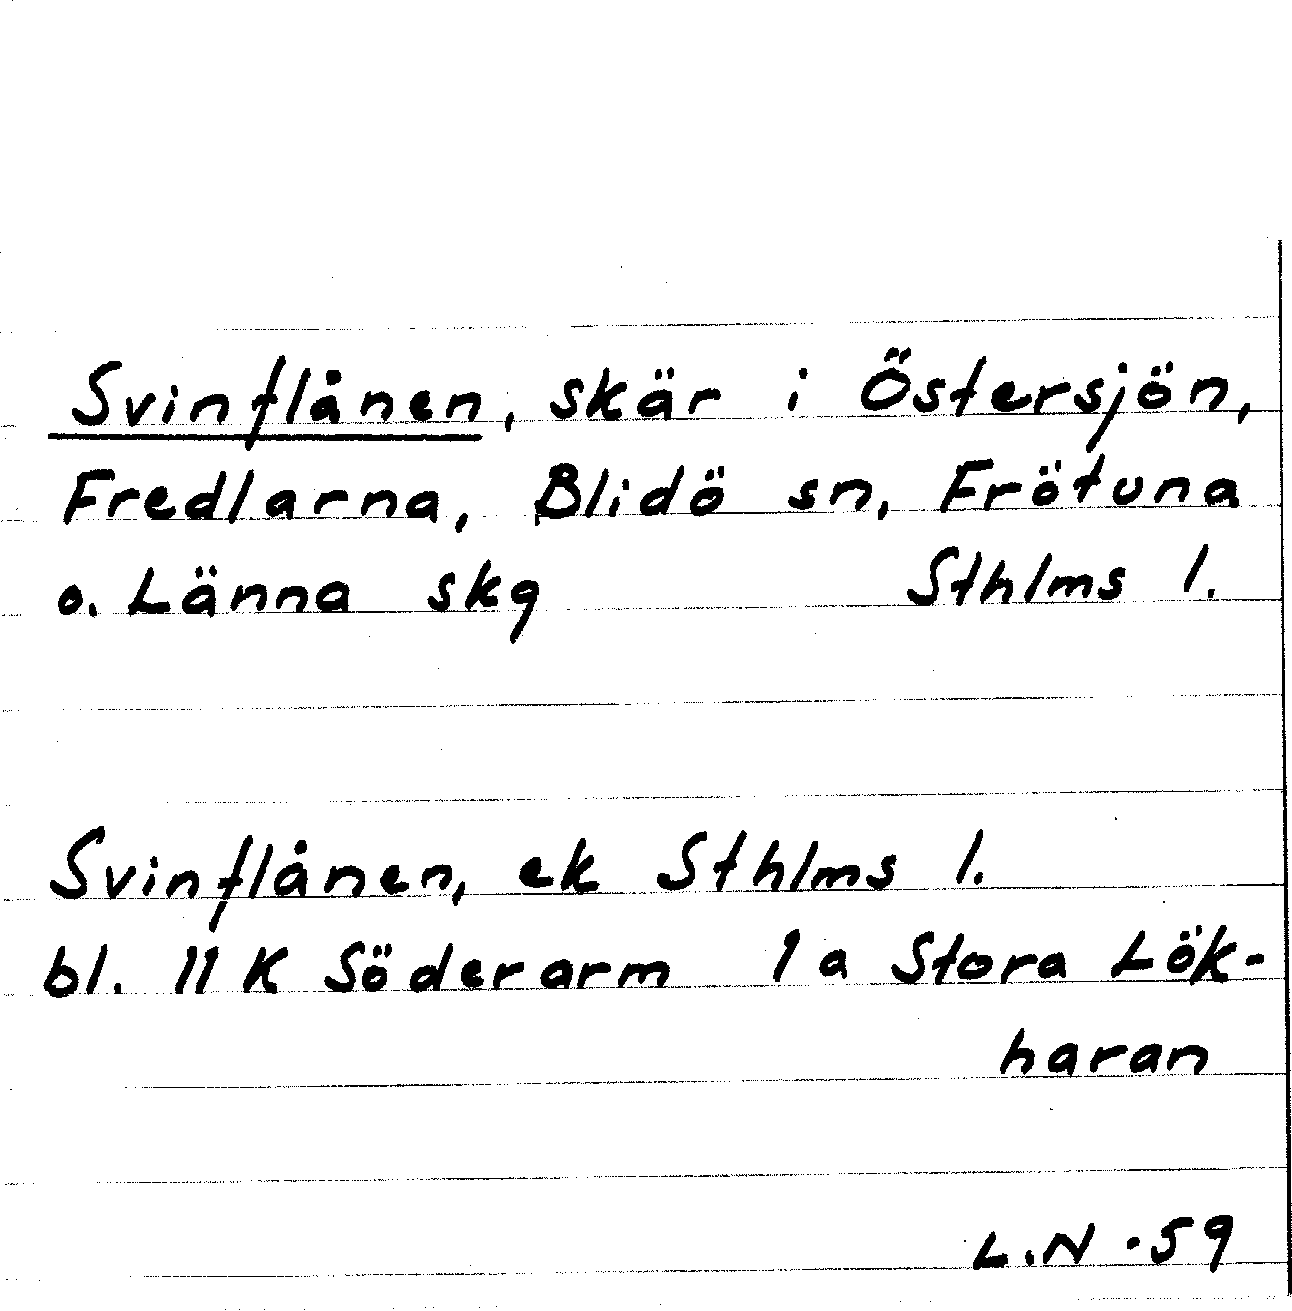 Svinflånen, skär i Östersjön,
Fredlarna, Blidö sn, Frötuna
o. Länna skg Sthlms l.
Svinflånen, ek Sthlms l.
bl. 11 K Söderarm 1 a Stora Lök-
haran
L.N -59